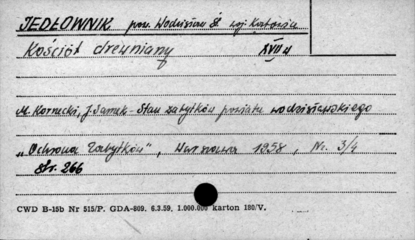 JEDŁOWNIK pow. Wodzisław Śl. woj. Katowice
Kościół drewniany XVII w
M. Kornecki, J. Samek - Stan zabytków powiatu wodzisławskiego
„Ochrona Zabytków", Warszawa 1958, Nr. 3/4
Str. 266
CWD B-15b Nr 515/P. GDA-809. 6.3.59. 1.000.000 karton 180/V.